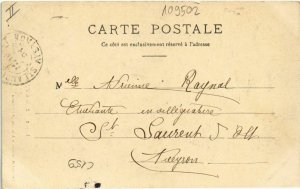 II
109502
CARTE POSTALE
Ce côté est exclusivement réservé à l'adresse
Mlle Raynal
Etudiante en villégiature
St Laurent d'Olt
Aveyron
C159